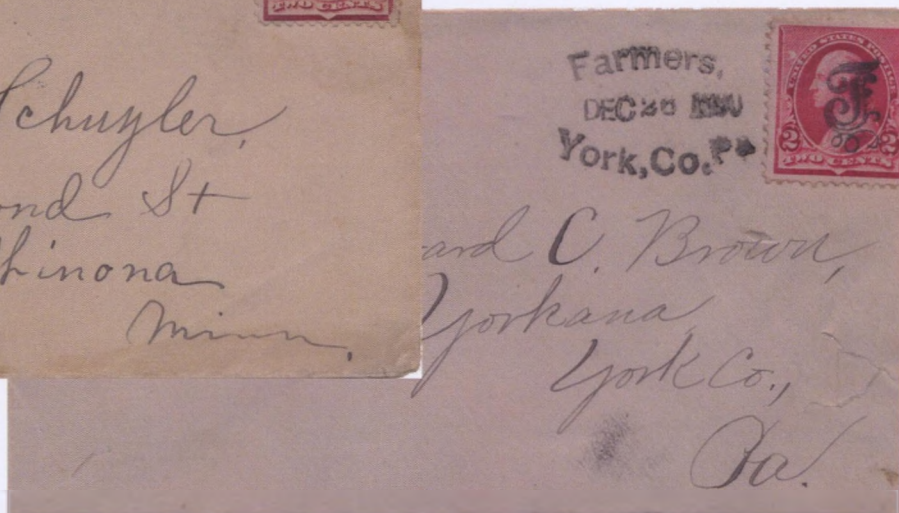 TWO CENTS
Schuyler,
ond St
Winona
Minn.
Farmers,
DEC 26 1890
York, Co. Pa
UNITED STATES POSTAGE
2 2
TWO CENTS
F
ard C. Brown,
Yorkana
York Co.,
Pa.